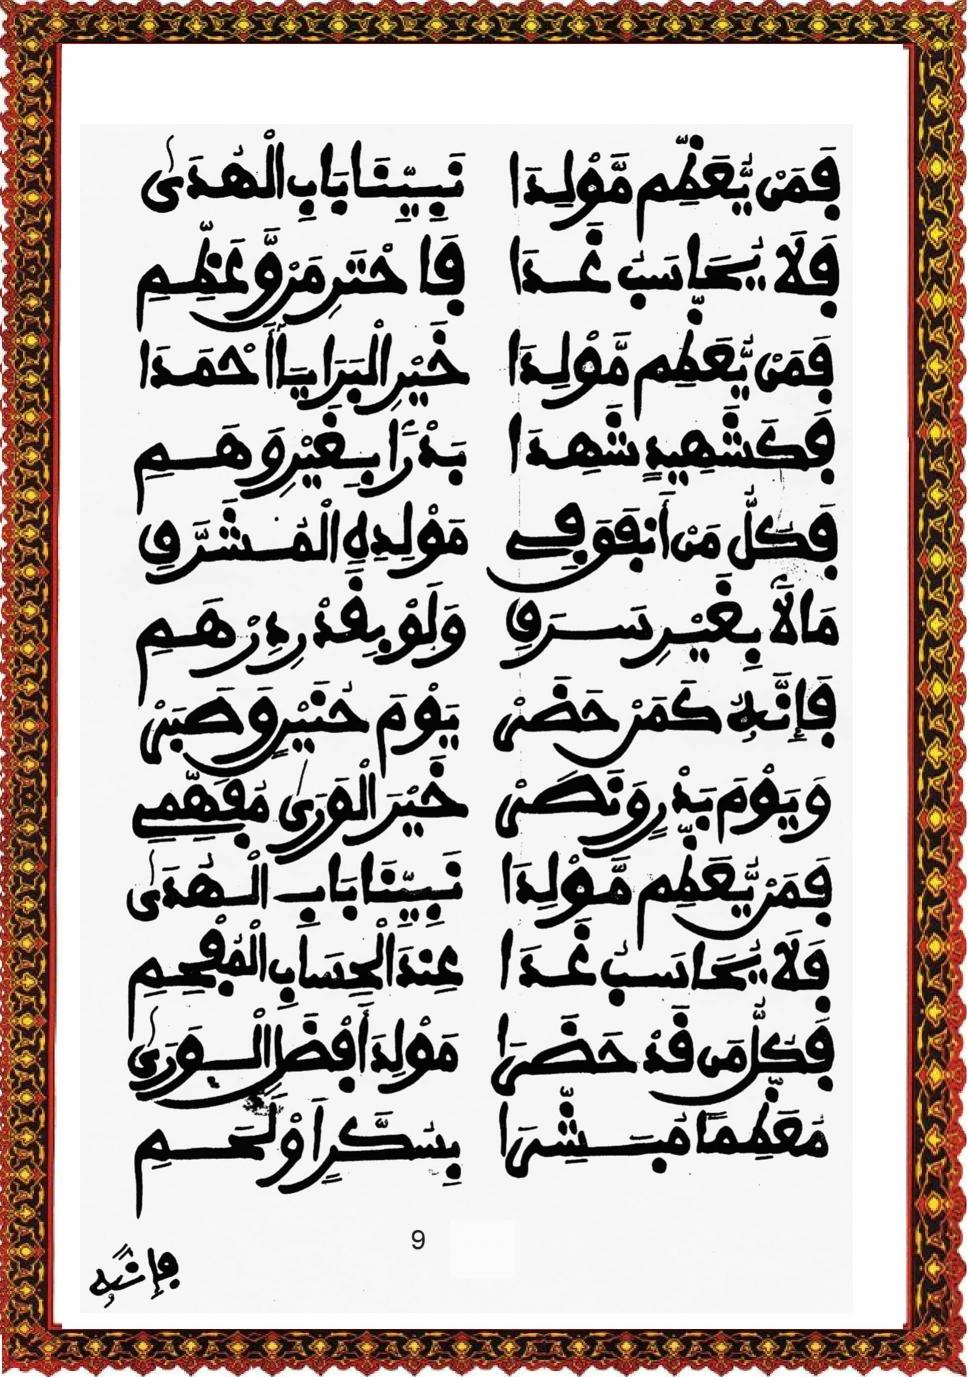 فَمَنْ يُّعَظِّم مَّوْلِدَا نَبِيِّنَا بَابِ الْهُدَىٰ
فَلَا يُحَاسَبُ غَدَا فَاحْتَرِمَنْ وَّعَظِّمِ
فَمَنْ يُّعَظِّم مَّوْلِدَا خَيْرِ الْبَرَايَا أَحْمَدَا
فَكَشَهِيدٍ شَهِدَا بَدْرًا بِغَيْرِ وَهَمِ
فَكُلُّ مَنْ أَنْفَقَ فِي مَوْلِدِهِ الْمُشَرَّفِ
مَالًا بِغَيْرِ سَرَفِ وَلَوْ بِقَدْرِ دِرْهَمِ
فَإِنَّهُ كَمَنْ حَضَرْ يَوْمَ حُنَيْرٍ وَصَبَرْ
وَيَوْمَ بَدْرٍ وَنَصَرْ خَيْرَ الْوَرَىٰ مُفَهِّمِي
فَمَنْ يُّعَظِّم مَّوْلِدَا نَبِيِّنَا بَابِ الْهُدَىٰ
فَلَا يُحَاسَبُ غَدَا عِنْدَ الْحِسَابِ الْمُفْحِمِ
فَكُلُّ مَنْ قَدْ حَضَرَا مَوْلِدَ أَفْضَلِ الْوَرَىٰ
مُعَظِّمًا مُبَشِّرَا بِسُكَّرٍ أَوْ لَحَمِ
9
فإنه